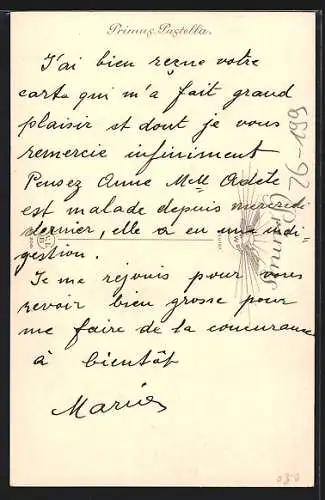 Primus Pastella.
J'ai bien reçue votre
carte qui m'a fait grand
plaisir et dont je vous
remercie infiniment
Pensez Anne Mlle Adèle
est malade depuis mercredi
dernier, elle a eu une indi-
gestion.
Je me rejouis pour vous
revoir bien grosse pour
me faire de la concurance
à bientôt
Marie
Primus
26-1999
030